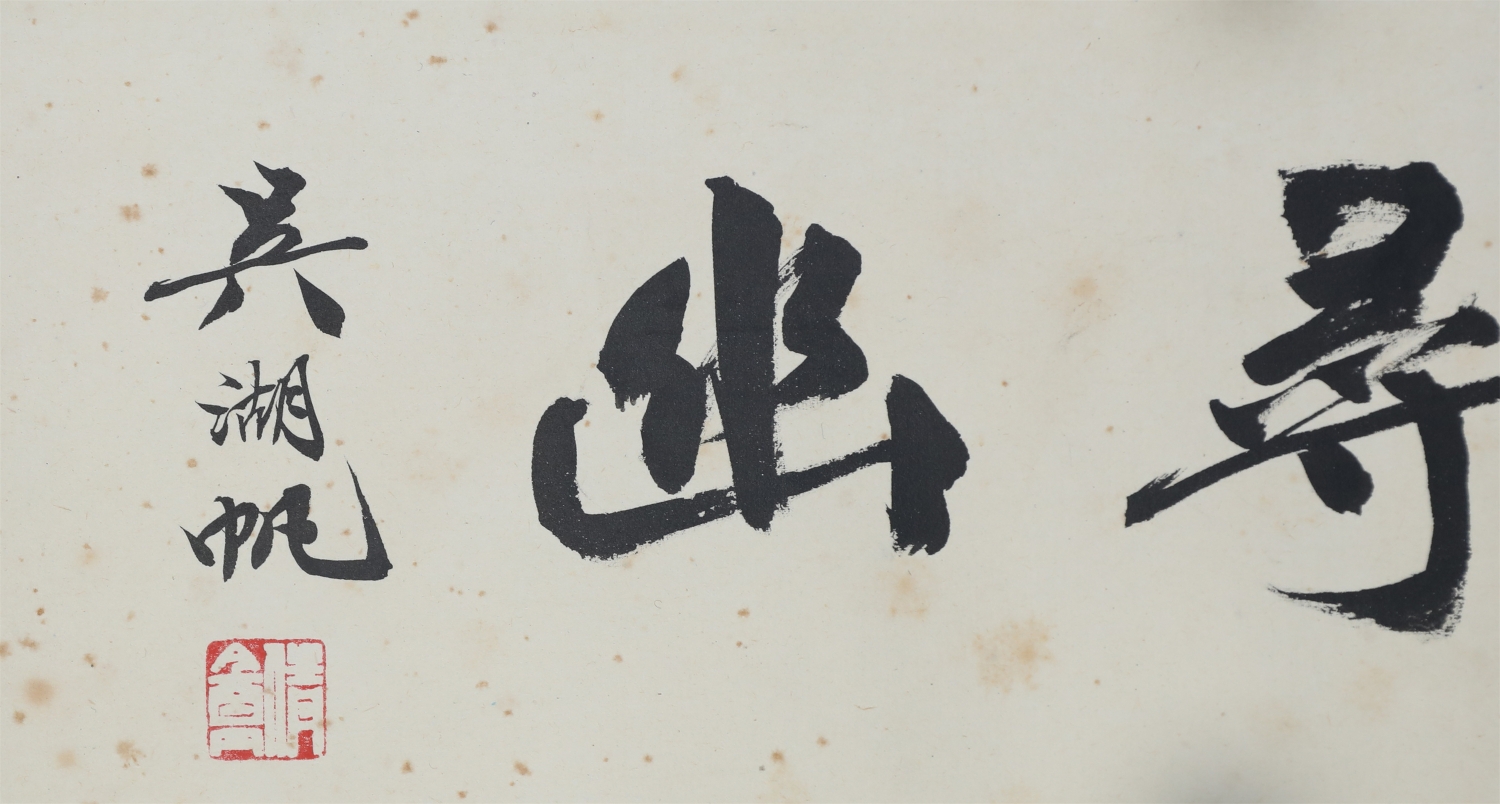 尋幽
吳湖帆